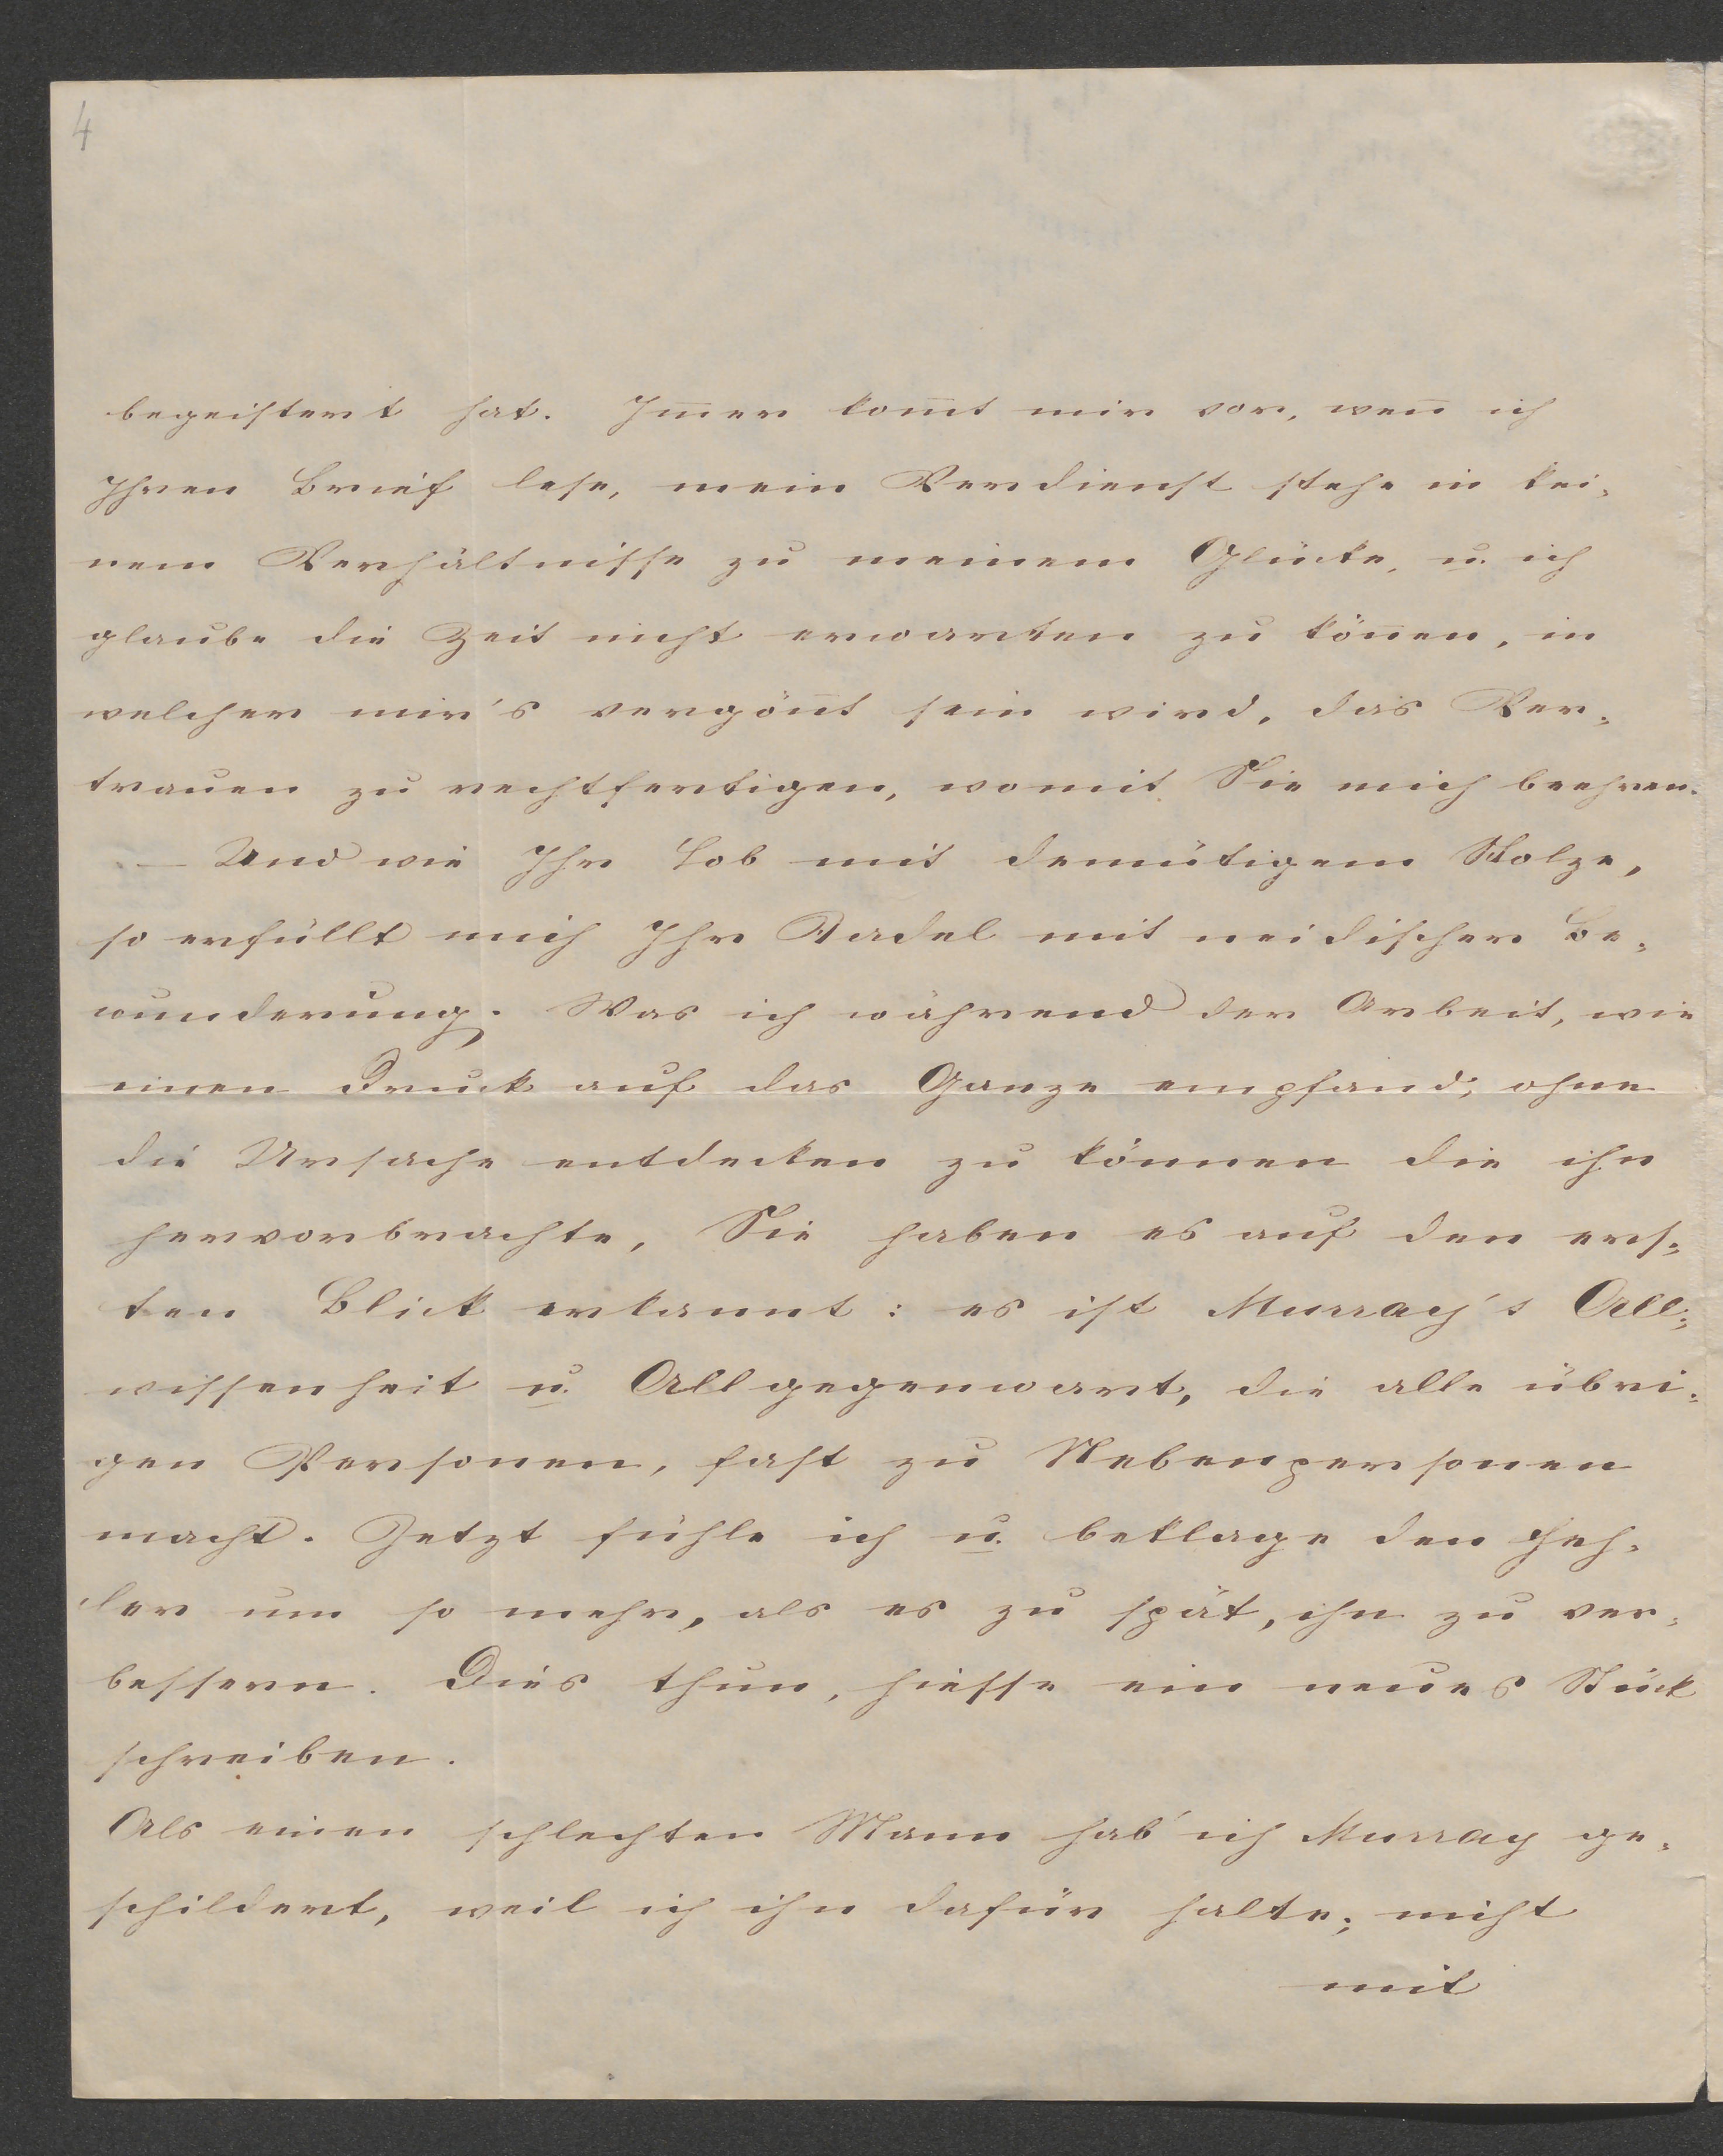 4
begeistert hat. Im̄er kom̄t mir vor, wen̄ ich
Ihren Brief lese, mein Verdienst stehe in kei-
nem Verhältnisse zu meinem Glücke, u. ich
glaube die Zeit nicht erwarten zu kön̄en, in
welcher mir's vergön̄t sein wird, das Ver-
trauen zu rechtfertigen, womit Sie mich beehren.
— Und wie Ihr Lob mit demütigem Stolze,
so erfüllt mich Ihr Tadel mit neidischer Be-
wunderung. Was ich während der Arbeit, wie
einen Druck auf das Ganze empfand, ohne
die Ursache entdecken zu können die ihn
hervorbrachte, Sie haben es auf den ers-
ten Blick erkannt: es ist Murray's All-
wissenheit u. Allgegenwart, die alle übri-
gen Personen, fast zu Nebenpersonen
macht. Jetzt fühle ich u. beklage den Feh-
ler um so mehr, als es zu spät, ihn zu ver-
bessern. Dies thun, hiesse ein neues Stück
schreiben.
Als einen schlechten Mann hab' ich Murray ge-
schildert, weil ich ihn dafür halte; nicht
mit